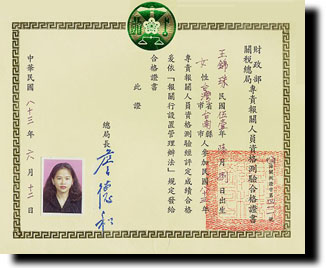 財政部
關稅總局專責報關人員資格測驗合格證書
王錦珠 民國伍壹年 月 日出生
女性 台灣省台南縣人參加民國八十三年
專責報關人員資格測驗經評定成績合格
爰依「報關行設置管理辦法」規定發給
合格證書
此證
總局長 詹德和
中華民國八十三年六月十二日